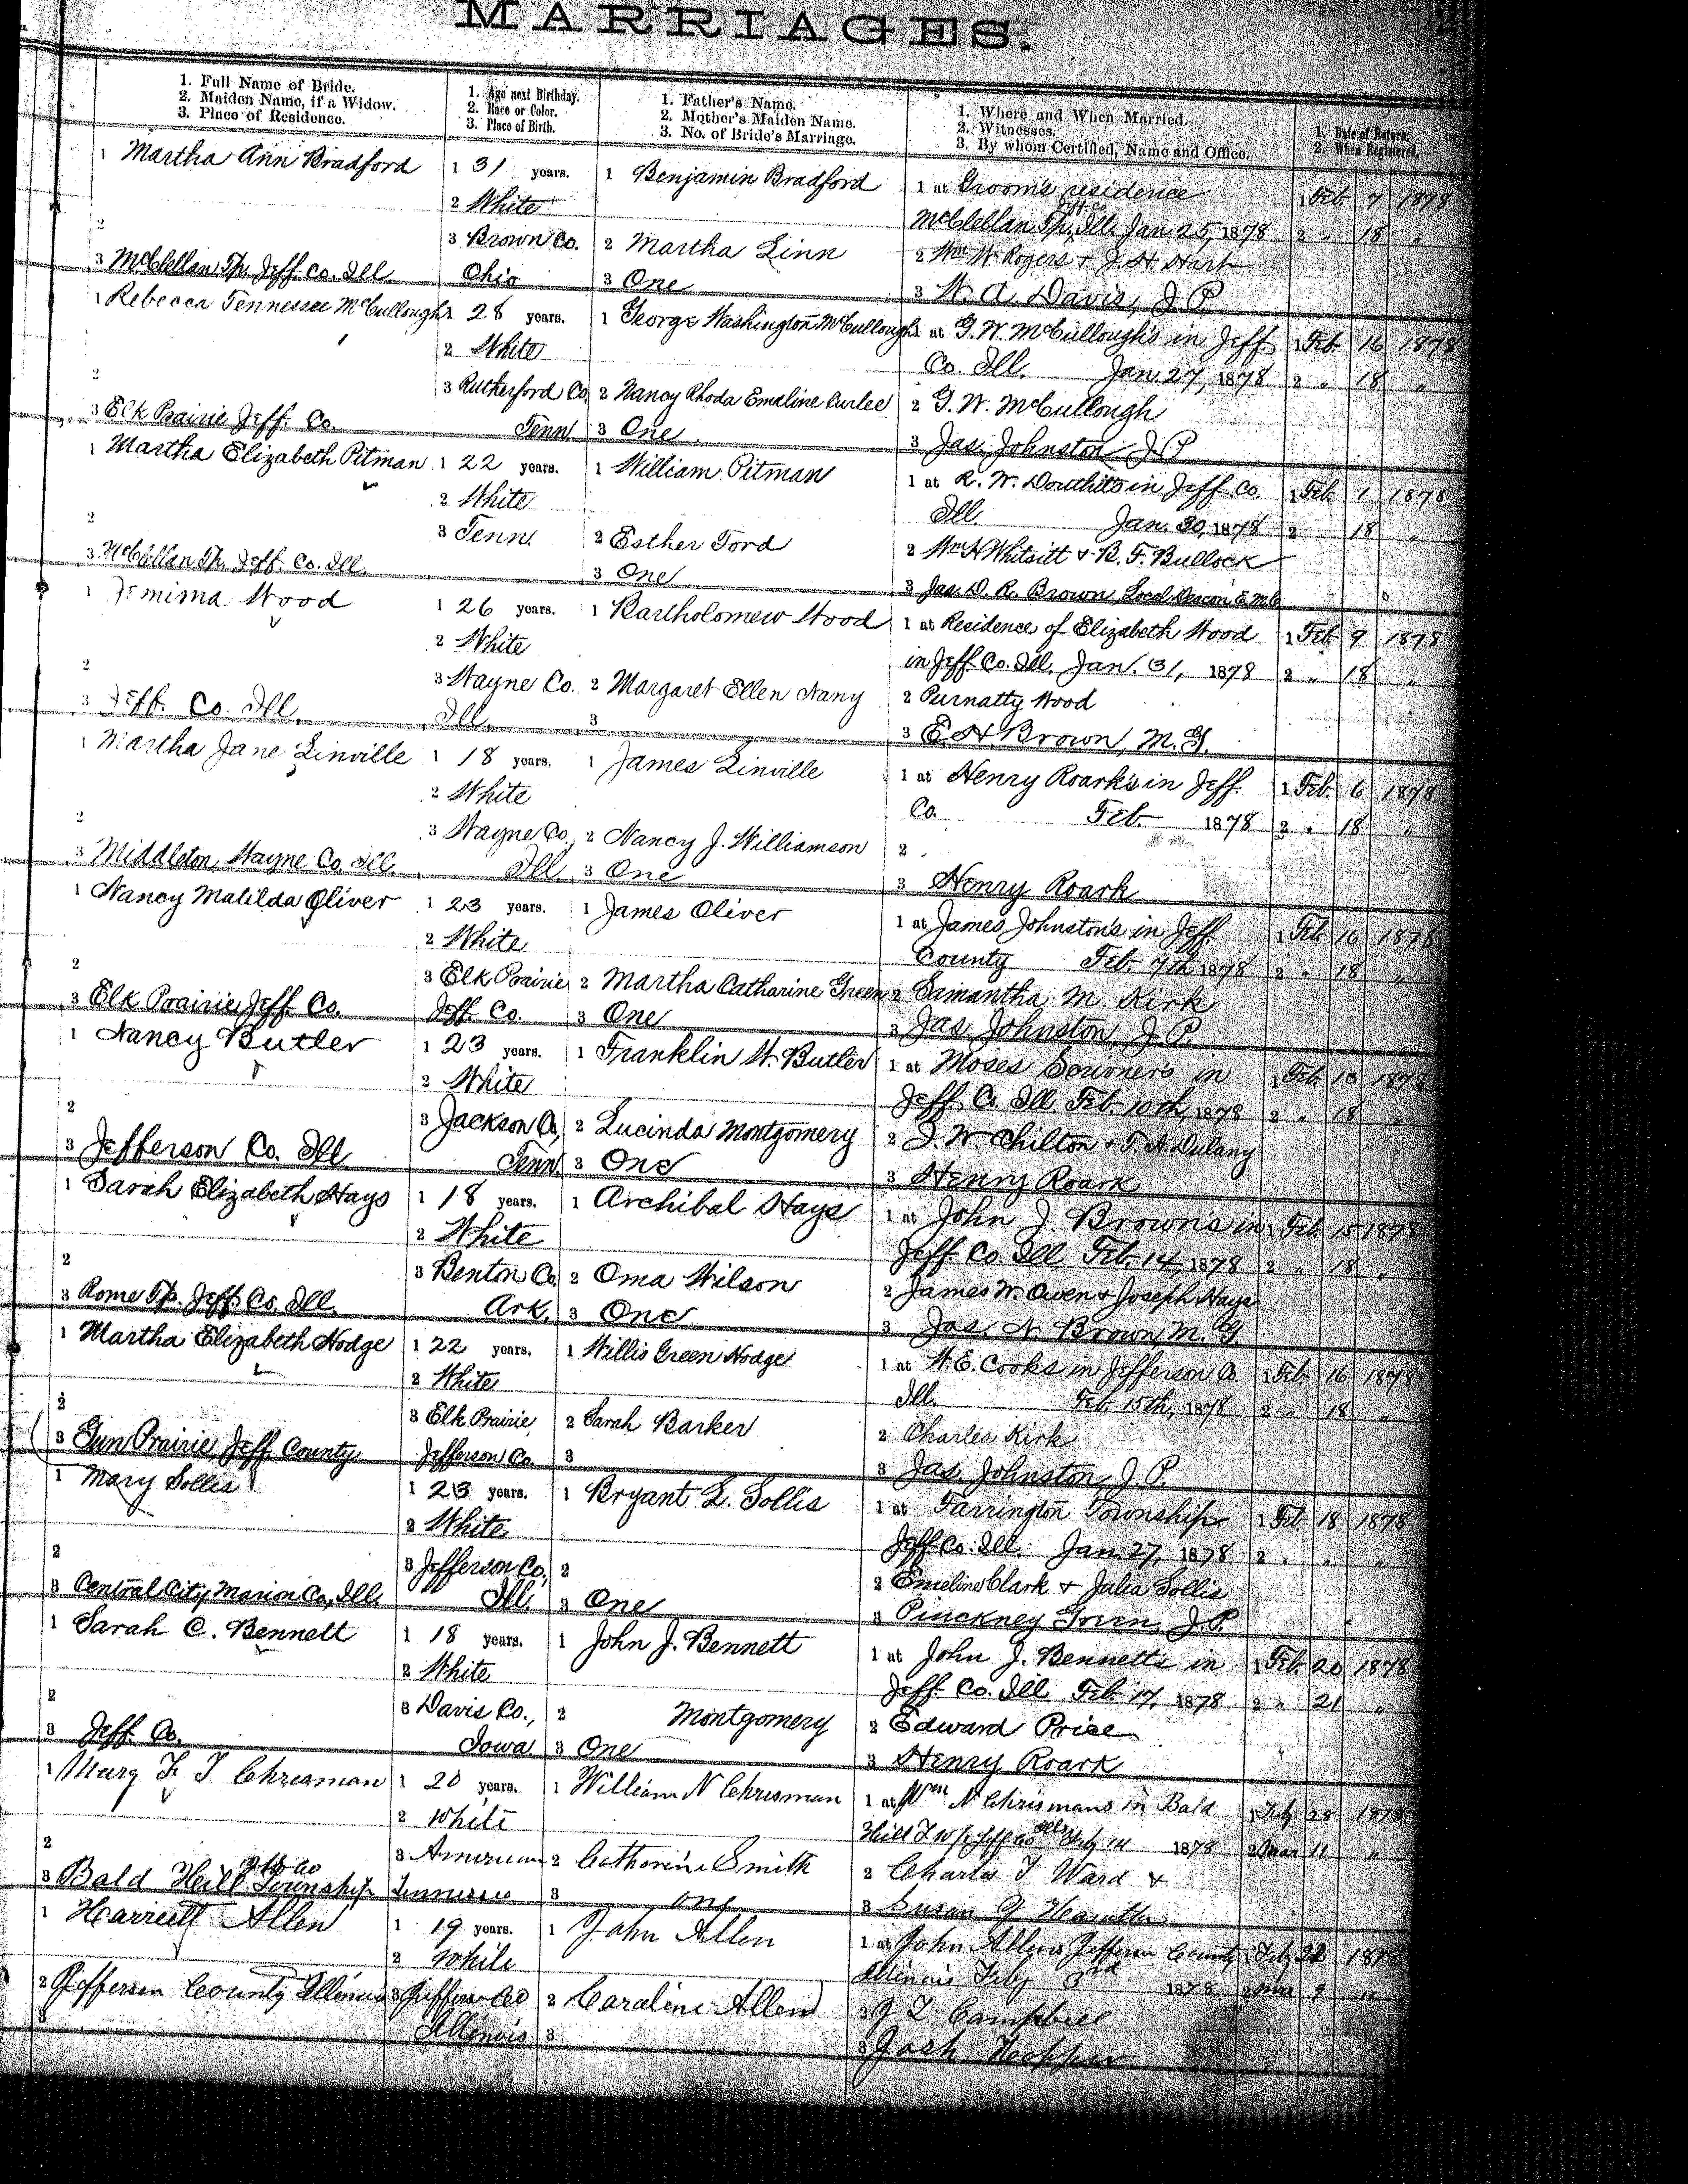 MARRIAGES.
1. Full Name of Bride.
2. Maiden Name, if a Widow.
3. Place of Residence.
1. Age next Birthday.
2. Race or Color.
3. Place of Birth.
1. Father's Name.
2. Mother's Maiden Name.
3. No. of Bride's Marriage.
1. Where and When Married.
2. Witnesses.
3. By whom Certified, Name and Office.
1. Date of Return.
2. When Registered.
1 Martha Ann Bradford 1 31 years. 1 Benjamin Bradford 1 at Groom's residence 1 Feb. 7 1878
2 White McClellan Tp. Jeff. Co. Ill. Jan 25, 1878 2 " 18 "
2 3 Brown Co. 2 Martha Linn 2 Wm W. Rogers & J. H. Hart
3 McClellan Tp. Jeff. Co. Ill. Ohio 3 One 3 W. A. Davis, J. P.
1 Rebecca Tennessee McCullough 1 28 years. 1 George Washington McCullough 1 at G. W. McCullough's in Jeff. 1 Feb. 16 1878
2 White Co. Ill. Jan. 27, 1878 2 " 18 "
2 3 Rutherford Co. 2 Nancy Rhoda Emaline Curlee 2 G. W. McCullough
3 Elk Prairie Jeff. Co. Tenn. 3 One 3 Jas. Johnston J. P.
1 Martha Elizabeth Pitman 1 22 years. 1 William Pitman 1 at R. W. Douthitt's in Jeff. Co. 1 Feb. 1 1878
2 White Ill. Jan. 30, 1878 2 18 "
2 3 Tenn. 2 Esther Ford 2 Wm H Whitsitt & B. F. Bullock
3 McClellan Tp. Jeff. Co. Ill. 3 One 3 Jas. D. R. Brown, Local Deacon E. M. C.
1 Jemima Wood 1 26 years. 1 Bartholomew Wood 1 at Residence of Elizabeth Wood 1 Feb. 9 1878
2 White in Jeff. Co. Ill. Jan. 31, 1878 2 " 18 "
2 3 Wayne Co. 2 Margaret Ellen Nany 2 Purnatty Wood
3 Jeff. Co. Ill. Ill. 3 3 E. H. Brown, M. G.
1 Martha Jane Linville 1 18 years. 1 James Linville 1 at Henry Roark's in Jeff. 1 Feb. 6 1878
2 White Co. Feb. 1878 2 " 18 "
2 3 Wayne Co. 2 Nancy J. Williamson 2
3 Middleton, Wayne Co. Ill. Ill. 3 One 3 Henry Roark
1 Nancy Matilda Oliver 1 23 years. 1 James Oliver 1 at James Johnston's in Jeff. 1 Feb. 16 1878
2 White County Feb. 7th 1878 2 " 18 "
2 3 Elk Prairie 2 Martha Catharine Green 2 Samantha M. Kirk
3 Elk Prairie Jeff. Co. Jeff. Co. 3 One 3 Jas. Johnston, J. P.
1 Nancy Butler 1 23 years. 1 Franklin W. Butler 1 at Moses Scrivner's in 1 Feb. 13 1878
2 White Jeff. Co. Ill. Feb. 10th, 1878 2 " 18 "
2 3 Jackson Co. 2 Lucinda Montgomery 2 J. W. Chilton & T. A. Dulany
3 Jefferson Co. Ill Tenn. 3 One 3 Henry Roark
1 Sarah Elizabeth Hays 1 18 years. 1 Archibal Hays 1 at John J. Brown's in 1 Feb. 15 1878
2 White Jeff. Co. Ill Feb. 14, 1878 2 " 18 "
2 3 Benton Co. 2 Oma Wilson 2 James W. Owen & Joseph Hays
3 Rome Tp. Jeff. Co. Ill. Ark. 3 One 3 Jas. N. Brown M. G.
1 Martha Elizabeth Hodge 1 22 years. 1 Willis Green Hodge 1 at W. E. Cook's in Jefferson Co. 1 Feb. 16 1878
2 White Ill. Feb. 15th, 1878 2 " 18 "
2 3 Elk Prairie, 2 Sarah Barker 2 Charles Kirk
3 Gun Prairie, Jeff. County Jefferson Co. 3 3 Jas. Johnston, J. P.
1 Mary Sollis 1 23 years. 1 Bryant L. Sollis 1 at Farrington Township 1 Feb. 18 1878
2 White Jeff. Co. Ill. Jan. 27, 1878 2 " " "
2 3 Jefferson Co., 2 2 Emeline Clark & Julia Sollis
3 Central City Marion Co., Ill. Ill. 3 One 3 Pinckney Green, J. P.
1 Sarah C. Bennett 1 18 years. 1 John J. Bennett 1 at John J. Bennett's in 1 Feb. 20 1878
2 White Jeff. Co. Ill. Feb. 17, 1878 2 " 21 "
2 3 Davis Co., 2 Montgomery 2 Edward Price
3 Jeff. Co. Iowa 3 One 3 Henry Roark
1 Mary F. T Chrisman 1 20 years. 1 William N Chrisman 1 at Wm N Chrismans in Bald 1 Feby 28 1878
2 White Hill T W p Jeff Co Ills Feby 14 1878 2 Mar 11 "
2 3 American 2 Catharine Smith 2 Charles T Ward &
3 Bald Hill Township Jeff Co Tennessee 3 one 3 Susan
1 Harriett Allen 1 19 years. 1 John Allen 1 at John Allens Jefferson County 1 Feby 22 1878
2 White Illinois Feby 3rd 1878 2 Mar 9 "
2 Jefferson County Illinois 3 Jefferson Co 2 Caroline Allen 2 J T Campbell
3 Illinois 3 3 Josh Hopper